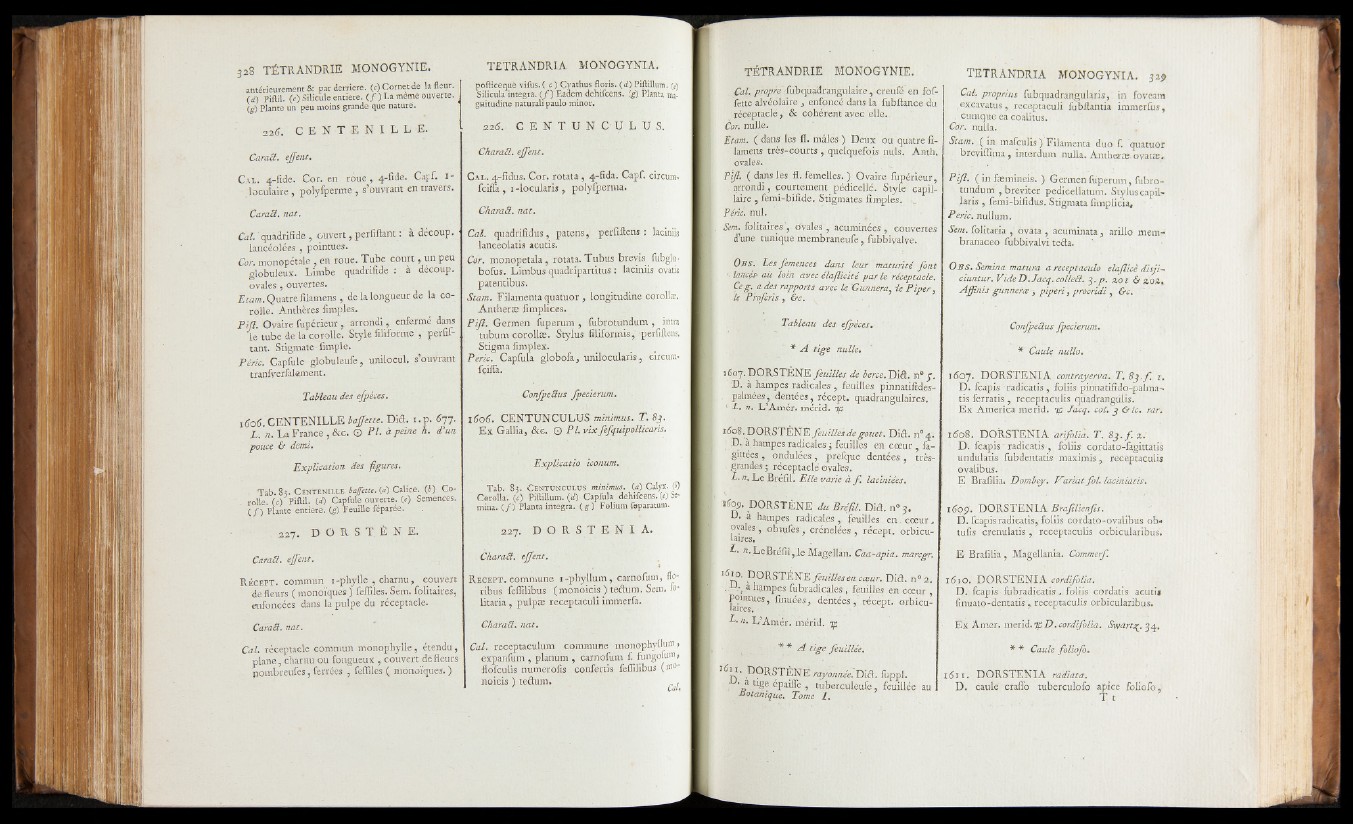 328 TÉTRANDRIE MONOGYNIE.
antérieurement & par derriere. (c) Cornet de la fleur.
(d) Piſtil. (e) Silicule entière. (f) La même ouverte.
(g) Plante un peu moins grande que nature.
226. CENTENILLE.
Caract. eſſent.
CAL. 4-fide. Cor. en roue, 4-fide. Capſ. 1-
loculaire, polyſperme, s'ouvrant en travers.
Caract. nat.
Cal. quadrifide, ouvert, perſiſtant : à découp.
lancéolées, pointues.
Cor. monopétale, en roue. Tube court, un peu
globuleux. Limbe quadrifide : à découp.
ovales, ouvertes.
Etam. Quatre filamens, de la longueur de la co-
rolle. Anthères ſimples.
Piſt. Ovaire ſupérieur, arrondi, enfermé dans
le tube de la corolle. Style filiforme, perſiſ-
tant. Stigmate ſimple.
Péric. Capſule globuleuſe, unilocul. s'ouvrant
tranſverſalement.
Tableau des eſpèces.
1606. CENTENILLE baſſette. Dict. 1. p. 677.
L. n. La France, &c. ☉ Pl. à peine h. d'un
pouce & demi.
Explication des figures.
Tab. 83. CENTENILLE baſſette. (a) Calice. (b) Co-
rolle. (c) Piſtil. (d) Capſule ouverte. (e) Semences.
(f) Plante entière. (g) Feuille ſéparée.
227. DORSTÈNE.
Caract. eſſent.
RÉCEPT. commun 1-phylle, charnu, couvert
de fleurs (monoïques) ſeſſiles. Sem. ſolitaires,
enfoncées dans la pulpe du réceptacle.
Caract. nat.
Cal. réceptacle commun monophylle, étendu,
plane, charnu ou fongueux, couvert de fleurs
nombreuſes, ſerrées, ſeſſiles (monoïques.)
TETRANDRIA MONOGYNIA.
poſticeque viſus. (c) Cyathus floris. (d) Piſtillum. (e)
Silicula integra. (f) Eadem dehiſcens. (g) Planta ma-
gnitudine naturali paulo minor.
226. CENTUNCULUS.
Charact. eſſent.
CAL. 4-fidus. Cor. rotata, 4-fida. Capſ. circum-
ſciſſa, 1-locularis, polyſperma.
Charact. nat.
Cal. quadrifidus, patens, perſiſtens : laciniis
lanceolatis acutis.
Cor. monopetala, rotata. Tubus brevis ſubglo-
boſus. Limbus quadripartitus : laciniis ovatis
patentibus.
Stam. Filamenta quatuor, longitudine corollæ.
Antheræ ſimplices.
Piſt. Germen ſuperum, ſubrotundum, intra
tubum corollæ. Stylus filiformis, perſiſtens.
Stigma ſimplex.
Peric. Capſula globoſa, unilocularis, circum-
ſciſſa.
Conſpectus ſpecierum.
1606. CENTUNCULUS minimus. T. 83.
Ex Gallia, &c. ☉ Pl. vix ſeſquipollicaris.
Explicatio iconum.
Tab. 83. CENTUNCULUS minimus. (a) Calyx. (b)
Corolla. (c) Piſtillum. (d) Capſula dehiſcens. (e) Se-
mina. (f) Planta integra. (g) Folium ſeparatum.
227. DORSTENIA.
Charact. eſſent.
RECEPT. commune 1-phyllum, carnoſum, flo-
ribus ſeſſilibus (monoicis) tectum. Sem. ſo-
litaria, pulpæ receptaculi immerſa.
Charact. nat.
Cal. receptaculum commune monophyllum,
expanſum, planum, carnoſum ſ. fungoſum,
floſculis numeroſis confertis ſeſſilibus (mo-
noicis) tectum.
Cal.
TÉTRANDRIE MONOGYNIE.
Cal. propre ſubquadrangulaire, creuſé en foſ-
ſette alvéolaire, enfoncé dans la ſubſtance du
réceptacle, & cohérent avec elle.
Cor. nulle.
Etam. (dans les fl. mâles) Deux ou quatre fi-
lamens très-courts, quelquefois nuls. Anth.
ovales.
Piſt. (dans les fl. femelles.) Ovaire ſupérieur,
arrondi, courtement pédicellé. Style capil-
laire, ſemi-bifide. Stigmates ſimples.
Péric. nul.
Sem. ſolitaires, ovales, acuminées, couvertes
d'une tunique membraneuſe, ſubbivalve.
OBS. Les ſemences dans leur maturité ſont
lancés au loin avec élaſticité par le réceptacle.
Ce g. a des rapports avec le Gunnera, le Piper,
le Procris, &c.
Tableau des eſpèces.
* A tige nulle.
1607. DORSTÈNE feuilles de berce. Dict. n° 5.
D. à hampes radicales, feuilles pinnatifides-
palmées, dentées, récept. quadrangulaires.
L. n. L'Amér. mérid. ♃
1608. DORSTÈNE feuilles de gouet. Dict. n° 4.
D. à hampes radicales; feuilles en cœur, ſa-
gittées, ondulées, preſque dentées, très-
grandes; réceptacle ovales.
L. n. Le Bréſil. Elle varie à f. laciniées.
1609. DORSTÈNE du Bréſil. Dict. n° 3.
D. à hampes radicales, feuilles en cœur,
ovales, obtuſes, crénelées, récept. orbicu-
laires.
L. n. Le Bréſil, le Magellan. Caa-apia. marcgr.
1610. DORSTÈNE feuilles en cœur. Dict. n° 2.
D. à hampes ſubradicales, feuilles en cœur,
pointues, ſinuées, dentées, récept. orbicu-
laires.
L. n. L'Amér. mérid. ♃
** A tige feuillée.
1611. DORSTÈNE rayonnée. Dict. ſuppl.
D. à tige épaiſſe, tuberculeuſe, feuillée au
Botanique. Tome I.
TETRANDRIA MONOGYNIA. 329
Cal. proprius ſubquadrangularis, in foveam
excavatus, receptaculi ſubſtantia immerſus,
cumque ea coalitus.
Cor. nulla.
Stam. (in maſculis) Filamenta duo ſ. quatuor
breviſſima, interdum nulla. Antheræ ovatæ.
Piſt. (in fœmineis.) Germen ſuperum, ſubro-
tundum, breviter pedicellatum. Stylus capil-
laris, ſemi-bifidus. Stigmata ſimplicia.
Peric. nullum.
Sem. ſolitaria, ovata, acuminata, arillo mem-
branaceo ſubbivalvi tecta.
OBS. Semina matura a receptaculo elaſticè disji-
ciuntur. Vide D. Jacq. collect. 3. p. 201 & 202.
Affinis gunneræ, piperi, procridi, &c.
Conſpectus ſpecierum.
* Caule nullo.
1607. DORSTENIA contrayerva. T. 83. f. 1.
D. ſcapis radicatis, foliis pinnatifido-palma-
tis ſerratis, receptaculis quadrangulis.
Ex America merid. ♃ Jacq. col. 3 & ic. rar.
1608. DORSTENIA arifolia. T. 83. f. 2.
D. ſcapis radicatis, foliis cordato-ſagittatis
undulatis ſubdentatis maximis, receptaculis
ovalibus.
E Braſilia. Dombey. Variat fol. laciniatis.
1609. DORSTENIA Braſilienſis.
D. ſcapis radicatis, foliis cordato-ovalibus ob-
tuſis crenulatis, receptaculis orbicularibus.
E Braſilia, Magellania. Commerſ.
1610. DORSTENIA cordifolia.
D. ſcapis ſubradicatis, foliis cordatis acutis
ſinuato-dentatis, receptaculis orbicularibus.
Ex Amer. merid. ♃ D. cordifolia. Swartz. 34.
** Caule folioſo.
1611. DORSTENIA radiata.
D. caule craſſo tuberculoſo apice folioſo,
T t